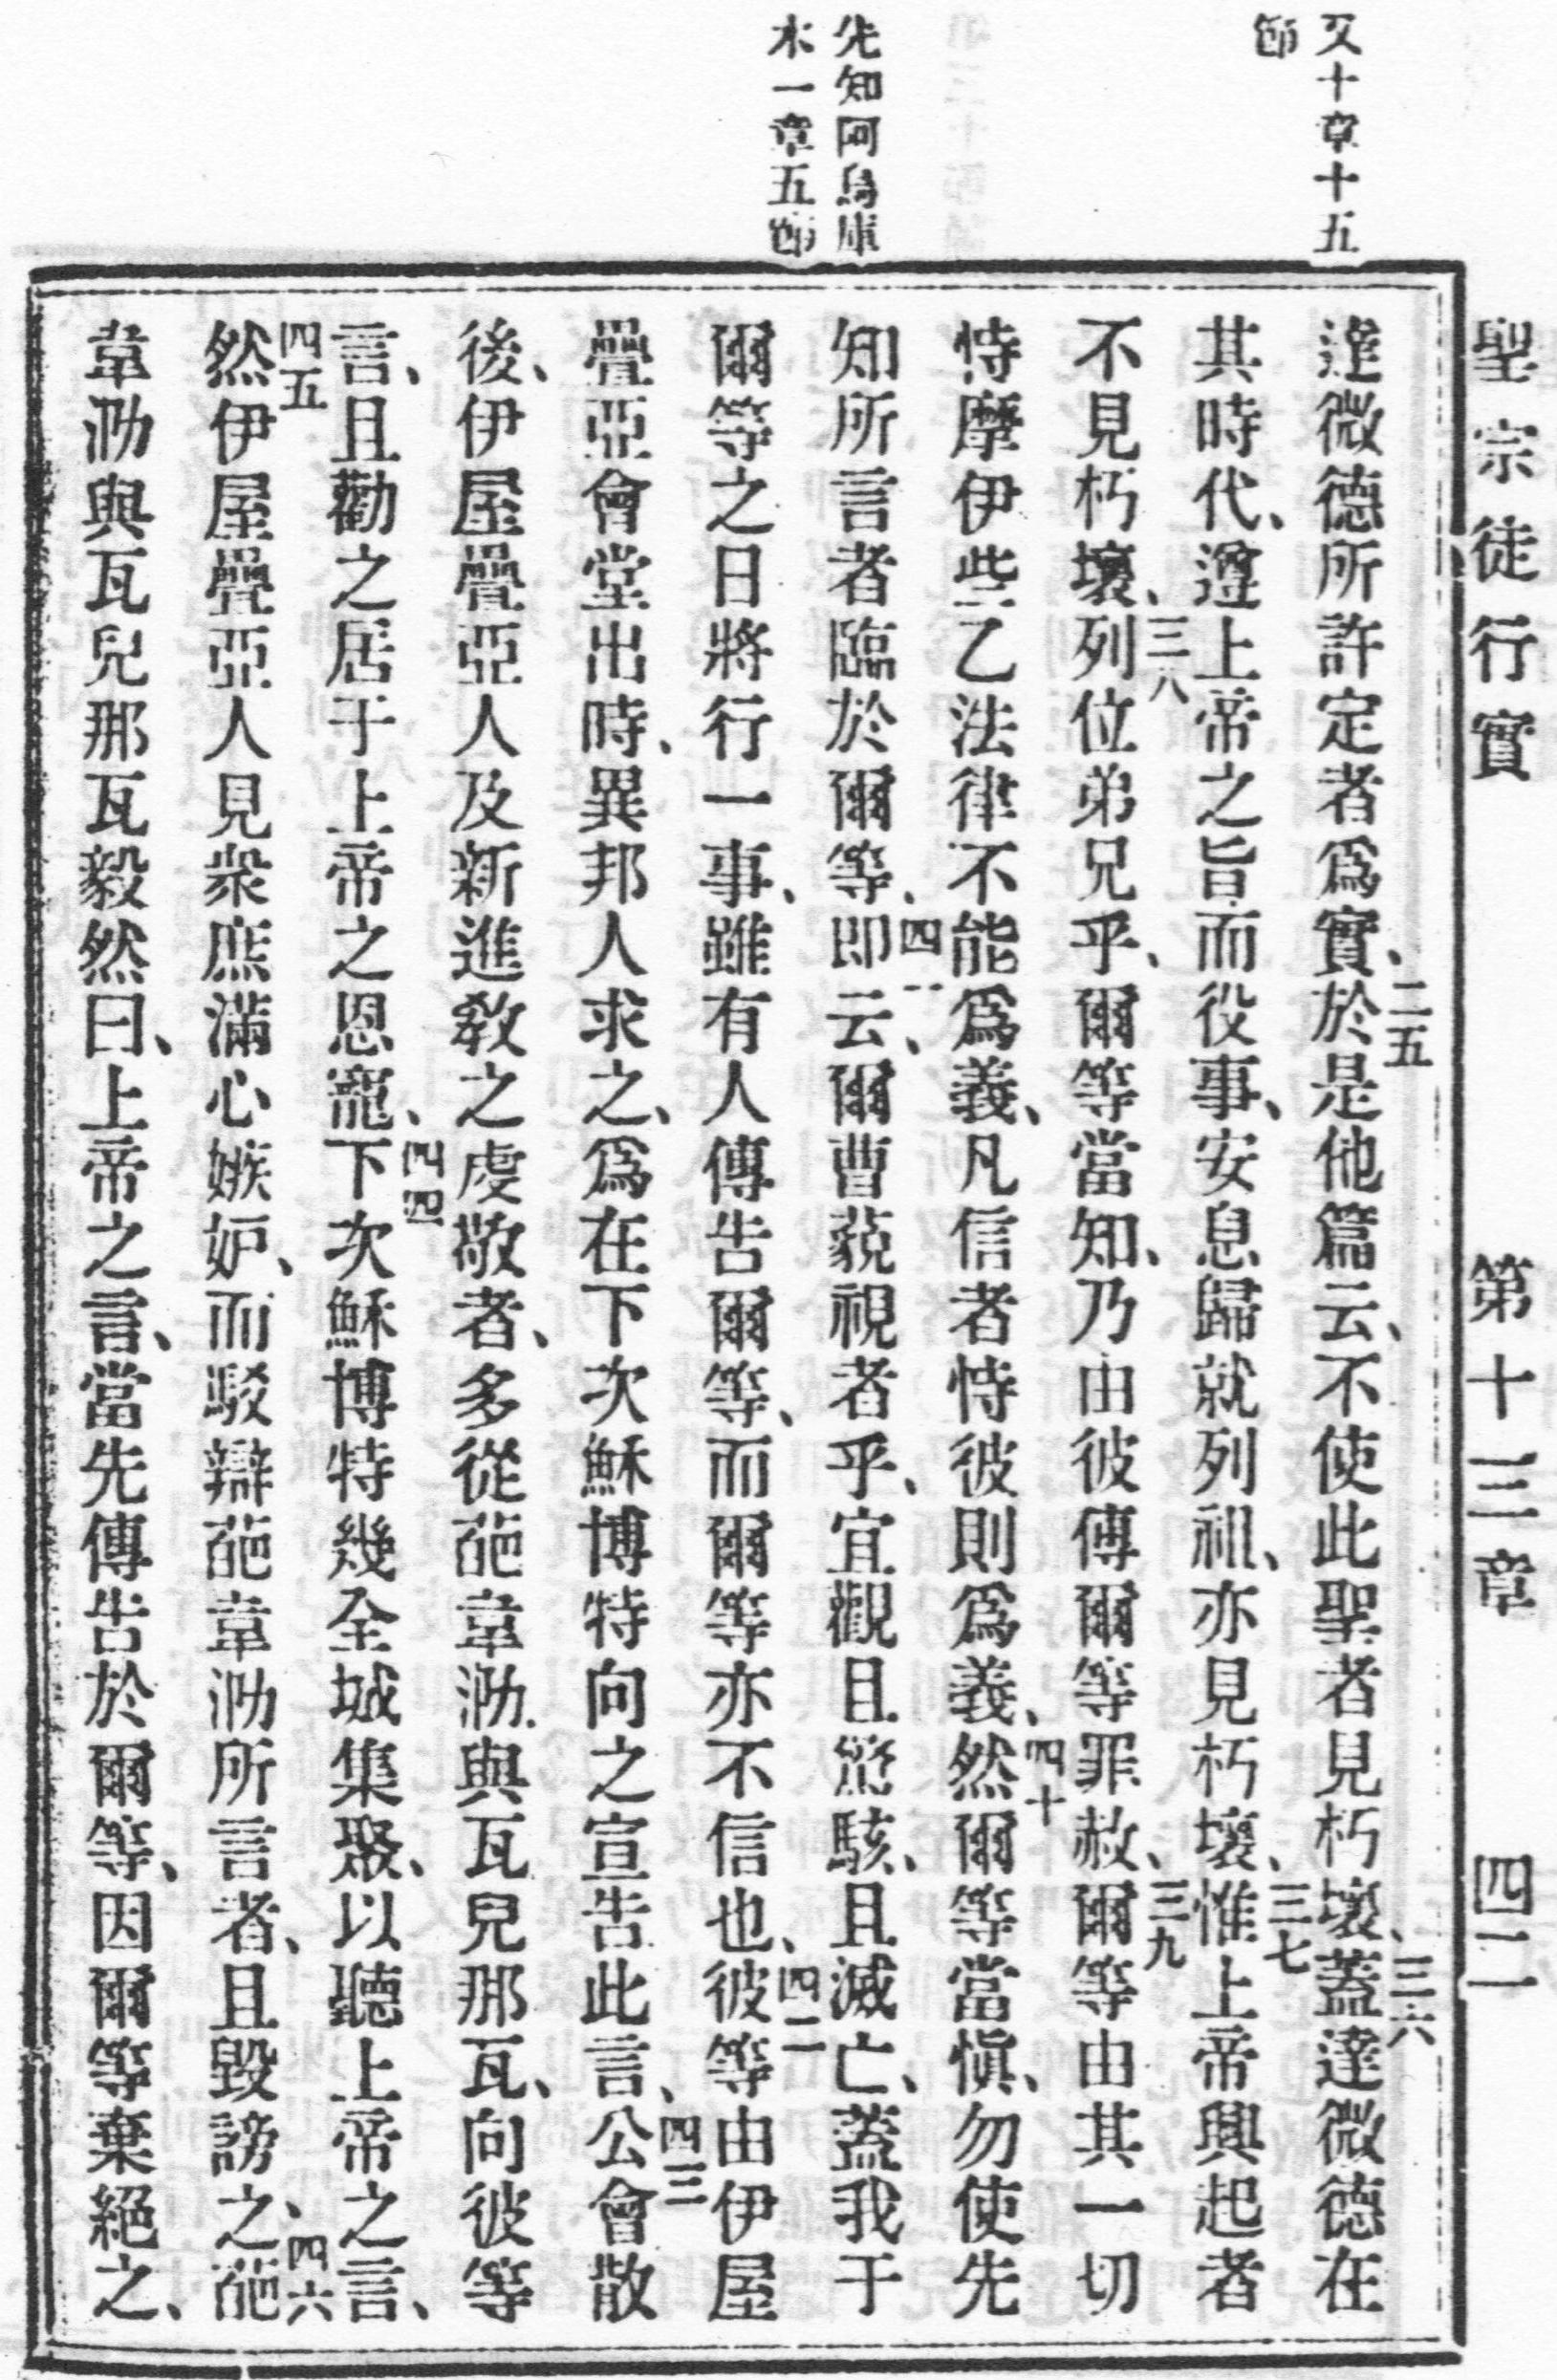 聖宗徒行實　第十三章　四二
又十章十五
節
先知阿烏庫
木一章五節
達微德所許定者爲實、二五於是他篇云、不使此聖者見朽壞、三六蓋達微德在
其時代、遵上帝之旨而役事、安息歸就列祖、亦見朽壞、三七惟上帝興起者
不見朽壞、三八列位弟兄乎、爾等當知、乃由彼傳爾等罪赦、三九爾等由其一切
恃摩伊些乙法律不能爲義、凡信者恃彼則爲義、四十然爾等當愼、勿使先
知所言者臨於爾等、四一即云、爾曹藐視者乎、宜觀且驚駭、且滅亡、蓋我于
爾等之日將行一事、雖有人傳告爾等、而爾等亦不信也、四二彼等由伊屋
疊亞會堂出時、異邦人求之、爲在下次穌博特向之宣告此言、四三公會散
後、伊屋疊亞人及新進敎之虔敬者、多從葩韋泐與瓦兒那瓦、向彼等
言、且勸之居于上帝之恩寵、四四下次穌博特幾全城集聚、以聽上帝之言、
四五然伊屋疊亞人見衆庶滿心嫉妒、而駁辯葩韋泐所言者、且毀謗之、四六葩
韋泐與瓦兒那瓦毅然曰、上帝之言、當先傳告於爾等、因爾等棄絕之、